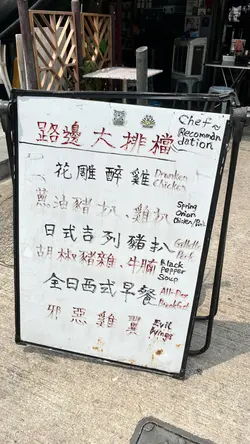 Chef~
Recomman
dation
路邊大排檔
花雕醉雞 Drunken
Chicken
蔥油豬扒、雞扒 Spring
onion
Chicken/Pork
日式吉列豬扒 Cutlets
Pork
胡椒豬雜、牛腩 Black
Pepper
Soup
全日西式早餐 All-Day
Breakfast
邪惡雞翼 Evil
Wings